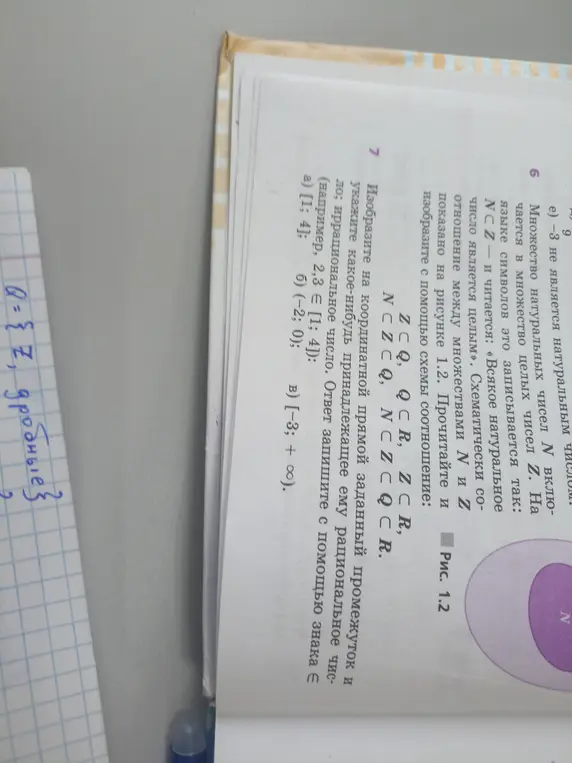 9
е) –3 не является натуральным числом.
6 Множество натуральных чисел N вклю-
чается в множество целых чисел Z. На
языке символов это записывается так:
N ⊂ Z — и читается: «Всякое натуральное
число является целым». Схематически со-
отношение между множествами N и Z
показано на рисунке 1.2. Прочитайте и
изобразите с помощью схемы соотношение:
Z ⊂ Q, Q ⊂ R, Z ⊂ R,
N ⊂ Z ⊂ Q, N ⊂ Z ⊂ Q ⊂ R.
N
Рис. 1.2
7 Изобразите на координатной прямой заданный промежуток и
укажите какое-нибудь принадлежащее ему рациональное чис-
ло; иррациональное число. Ответ запишите с помощью знака ∈
(например, 2,3 ∈ [1; 4]):
а) [1; 4]; б) (–2; 0); в) [–3; + ∞).
Q = { Z, дробные}